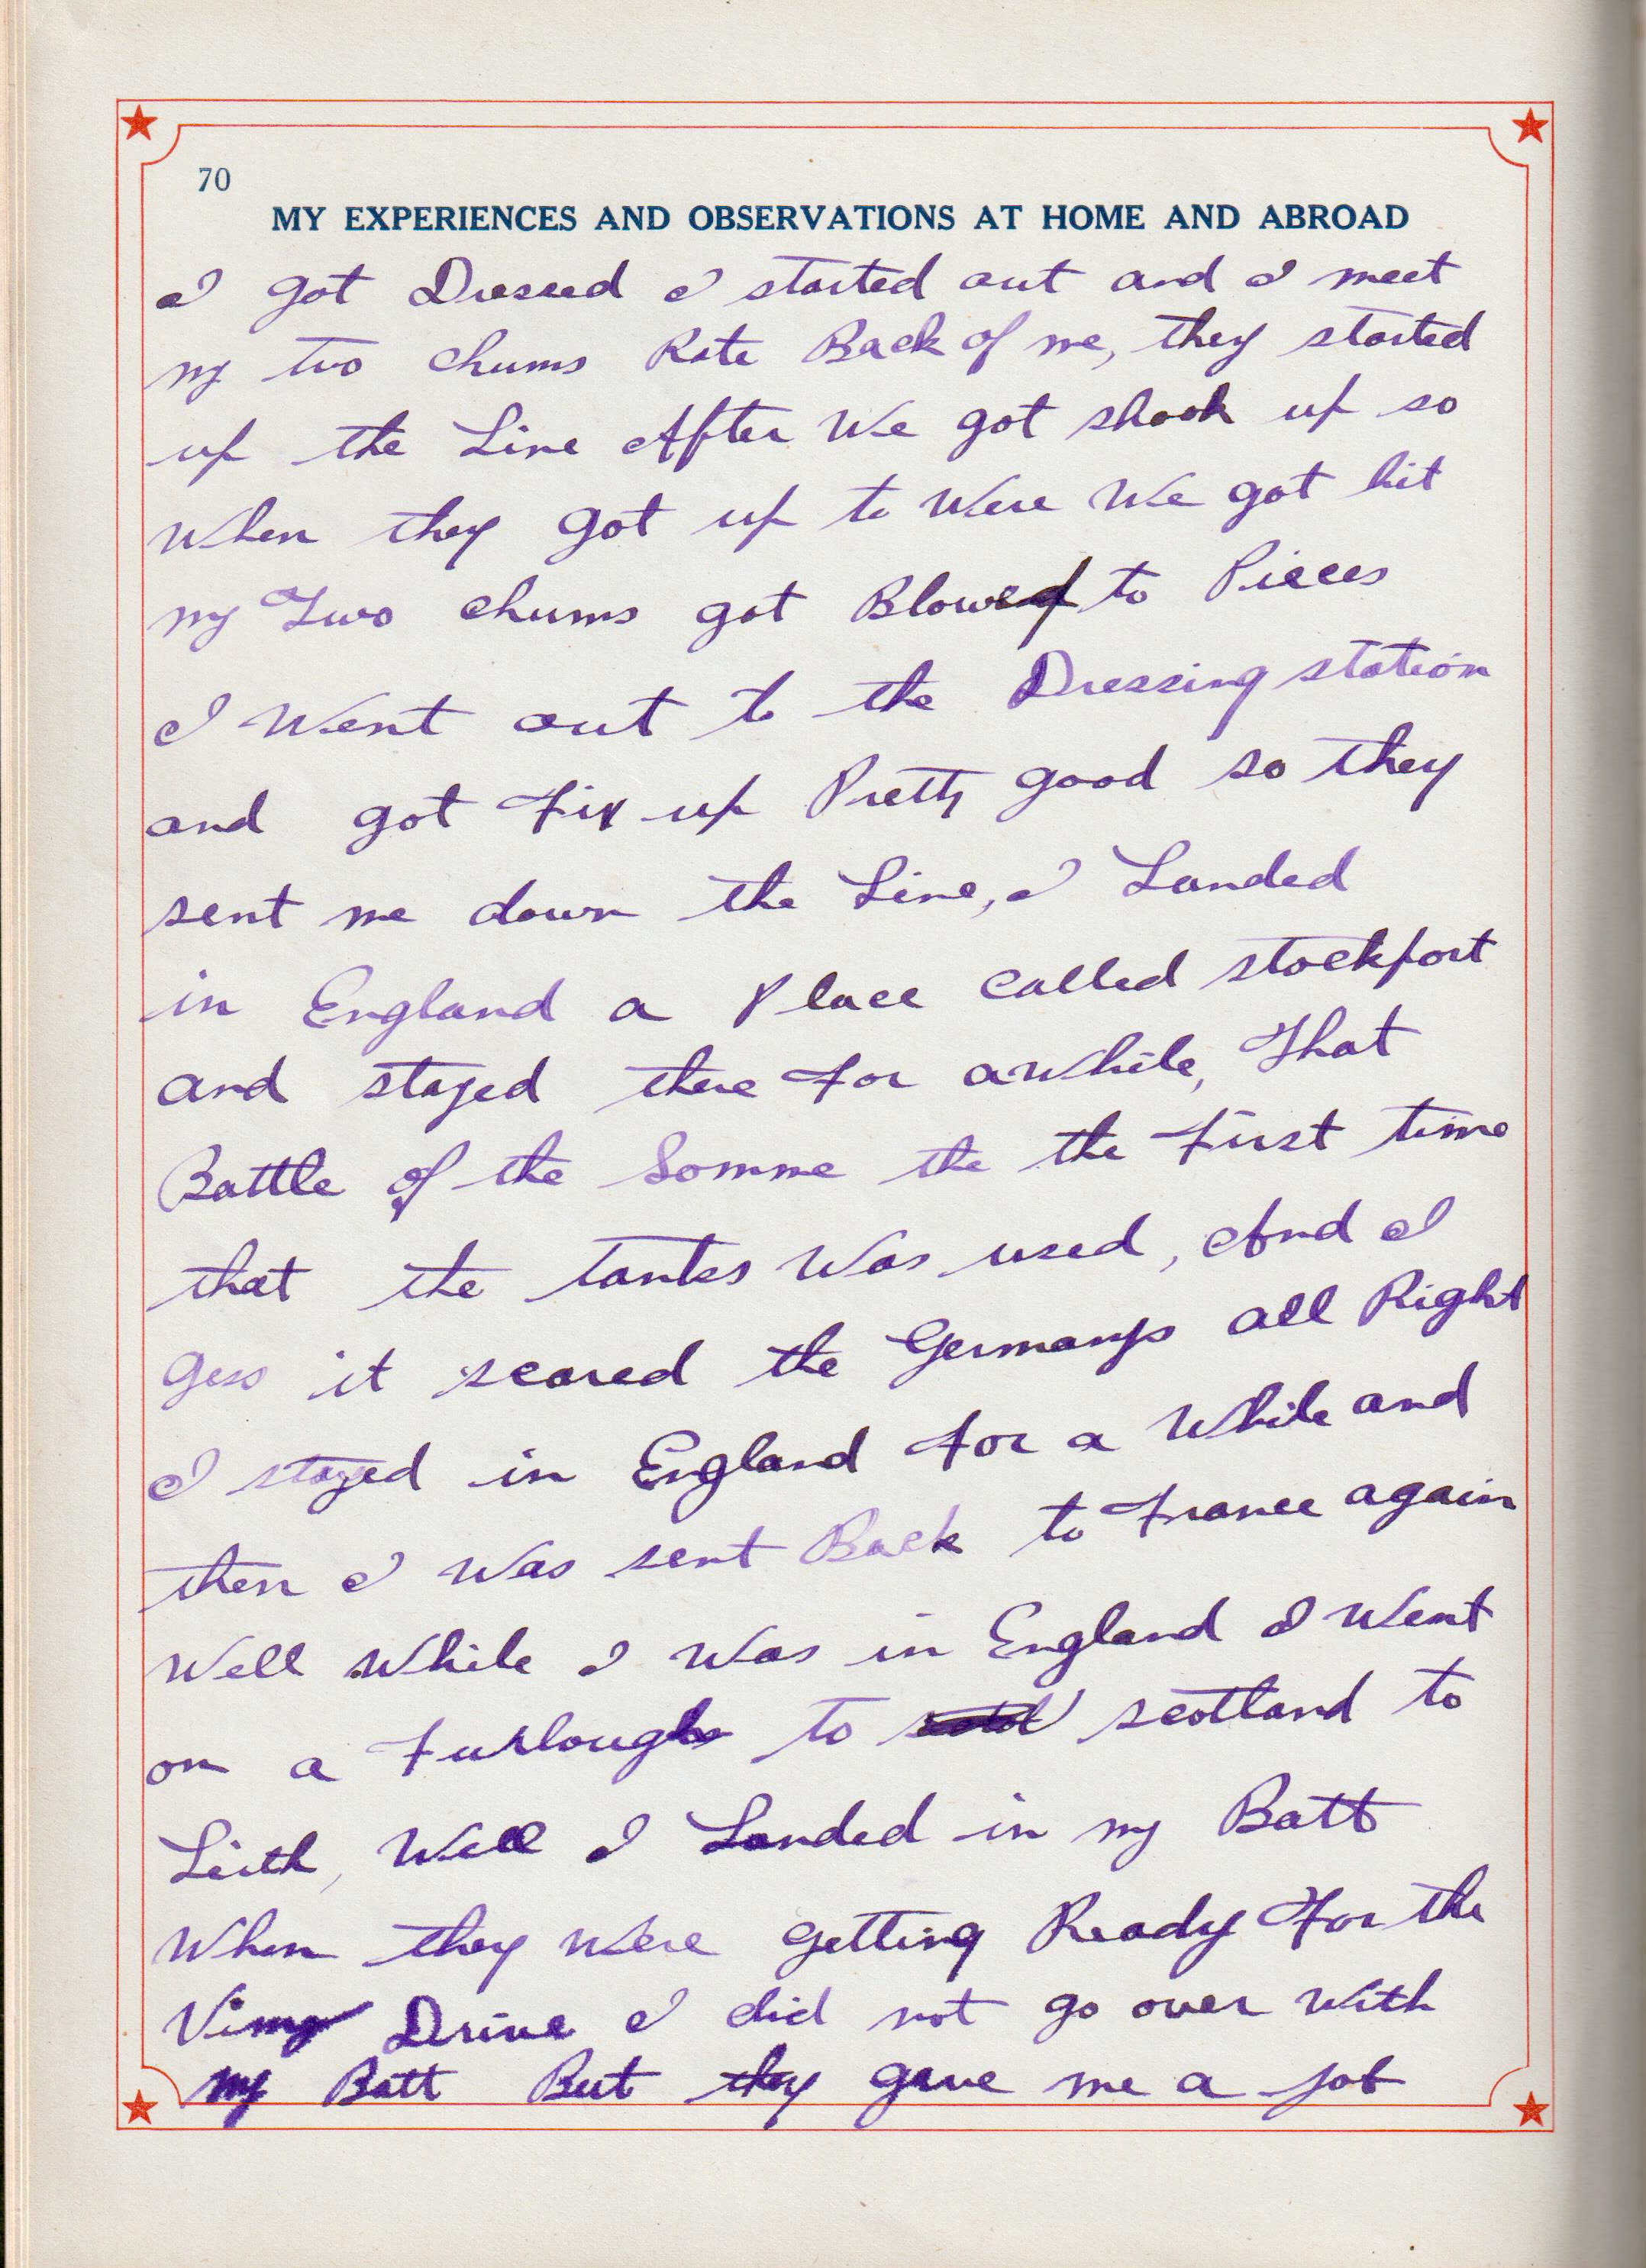 70
MY EXPERIENCES AND OBSERVATIONS AT HOME AND ABROAD
I got Dressed I started out and I meet
my two chums Rite Back of me, they started
up the Line After We got shook up so
When they got up to Were We got hit
my Two chums got Blowed to Pieces
I Went out to the Dressing station
and got Fix up Pretty good so they
sent me down the Line, I Landed
in England a Place called stockport
and stayed there For awhile, That
Battle of the Somme the the First time
that the tanks Was used, And I
Gess it scared the Germanys all Right
I stayed in England For a While and
then I Was sent Back to France again
Well While I Was in England I Went
on a Furlough to scotland to
Lieth, Well I Landed in my Batt
When they Were getting Ready For the
Vimy Drive I did not go over With
my Batt But they gave me a job